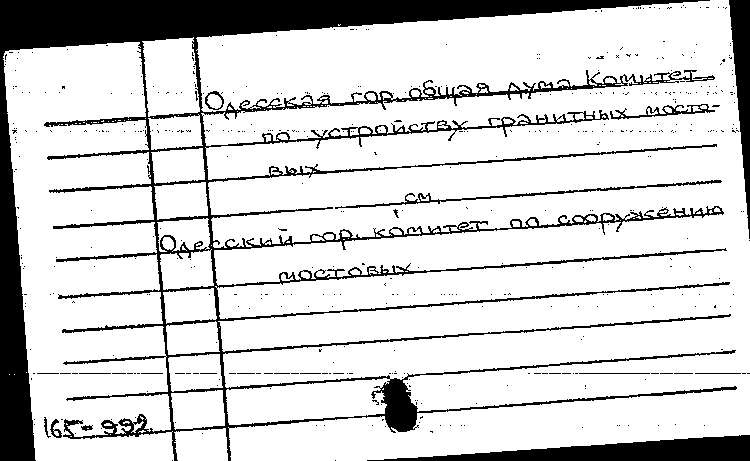 Одесская гор. общая дума. Комитет
по устройству гранитных мосто-
вых
см.
Одесский гор. комитет по сооружению
мостовых
165-992